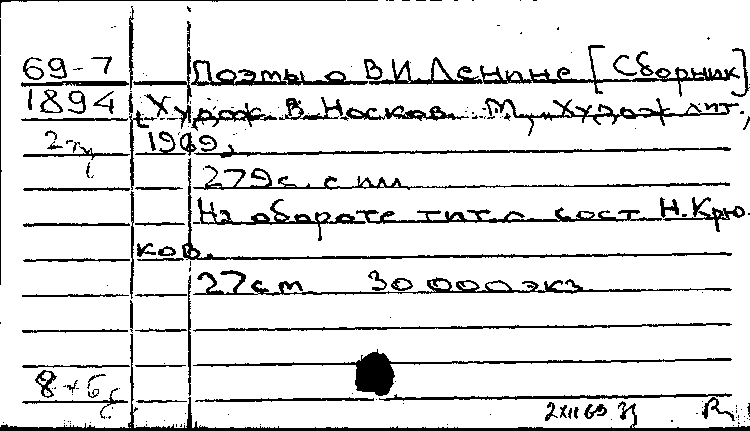 69-7 Поэты о В.И. Ленине [Сборник]
1894 [Худож. В. Носков. М., "Худож. лит.,
1969,
279 с. с илл
На обороте тит. л. сост Н. Крю
ков.
27 см 30 000 экз
8+б
2 XII 69